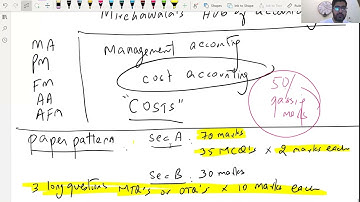 Mirchawala's Hub of accounting
MA
PM
FM
AA
AFM
Management accounting
cost accounting
"COSTS"
50%
passing
marks
paper pattern.
Sec A: 70 marks
35 MCQ's x 2 marks each
Sec B: 30 marks
3 long questions MTQ's or OTQ's x 10 marks each